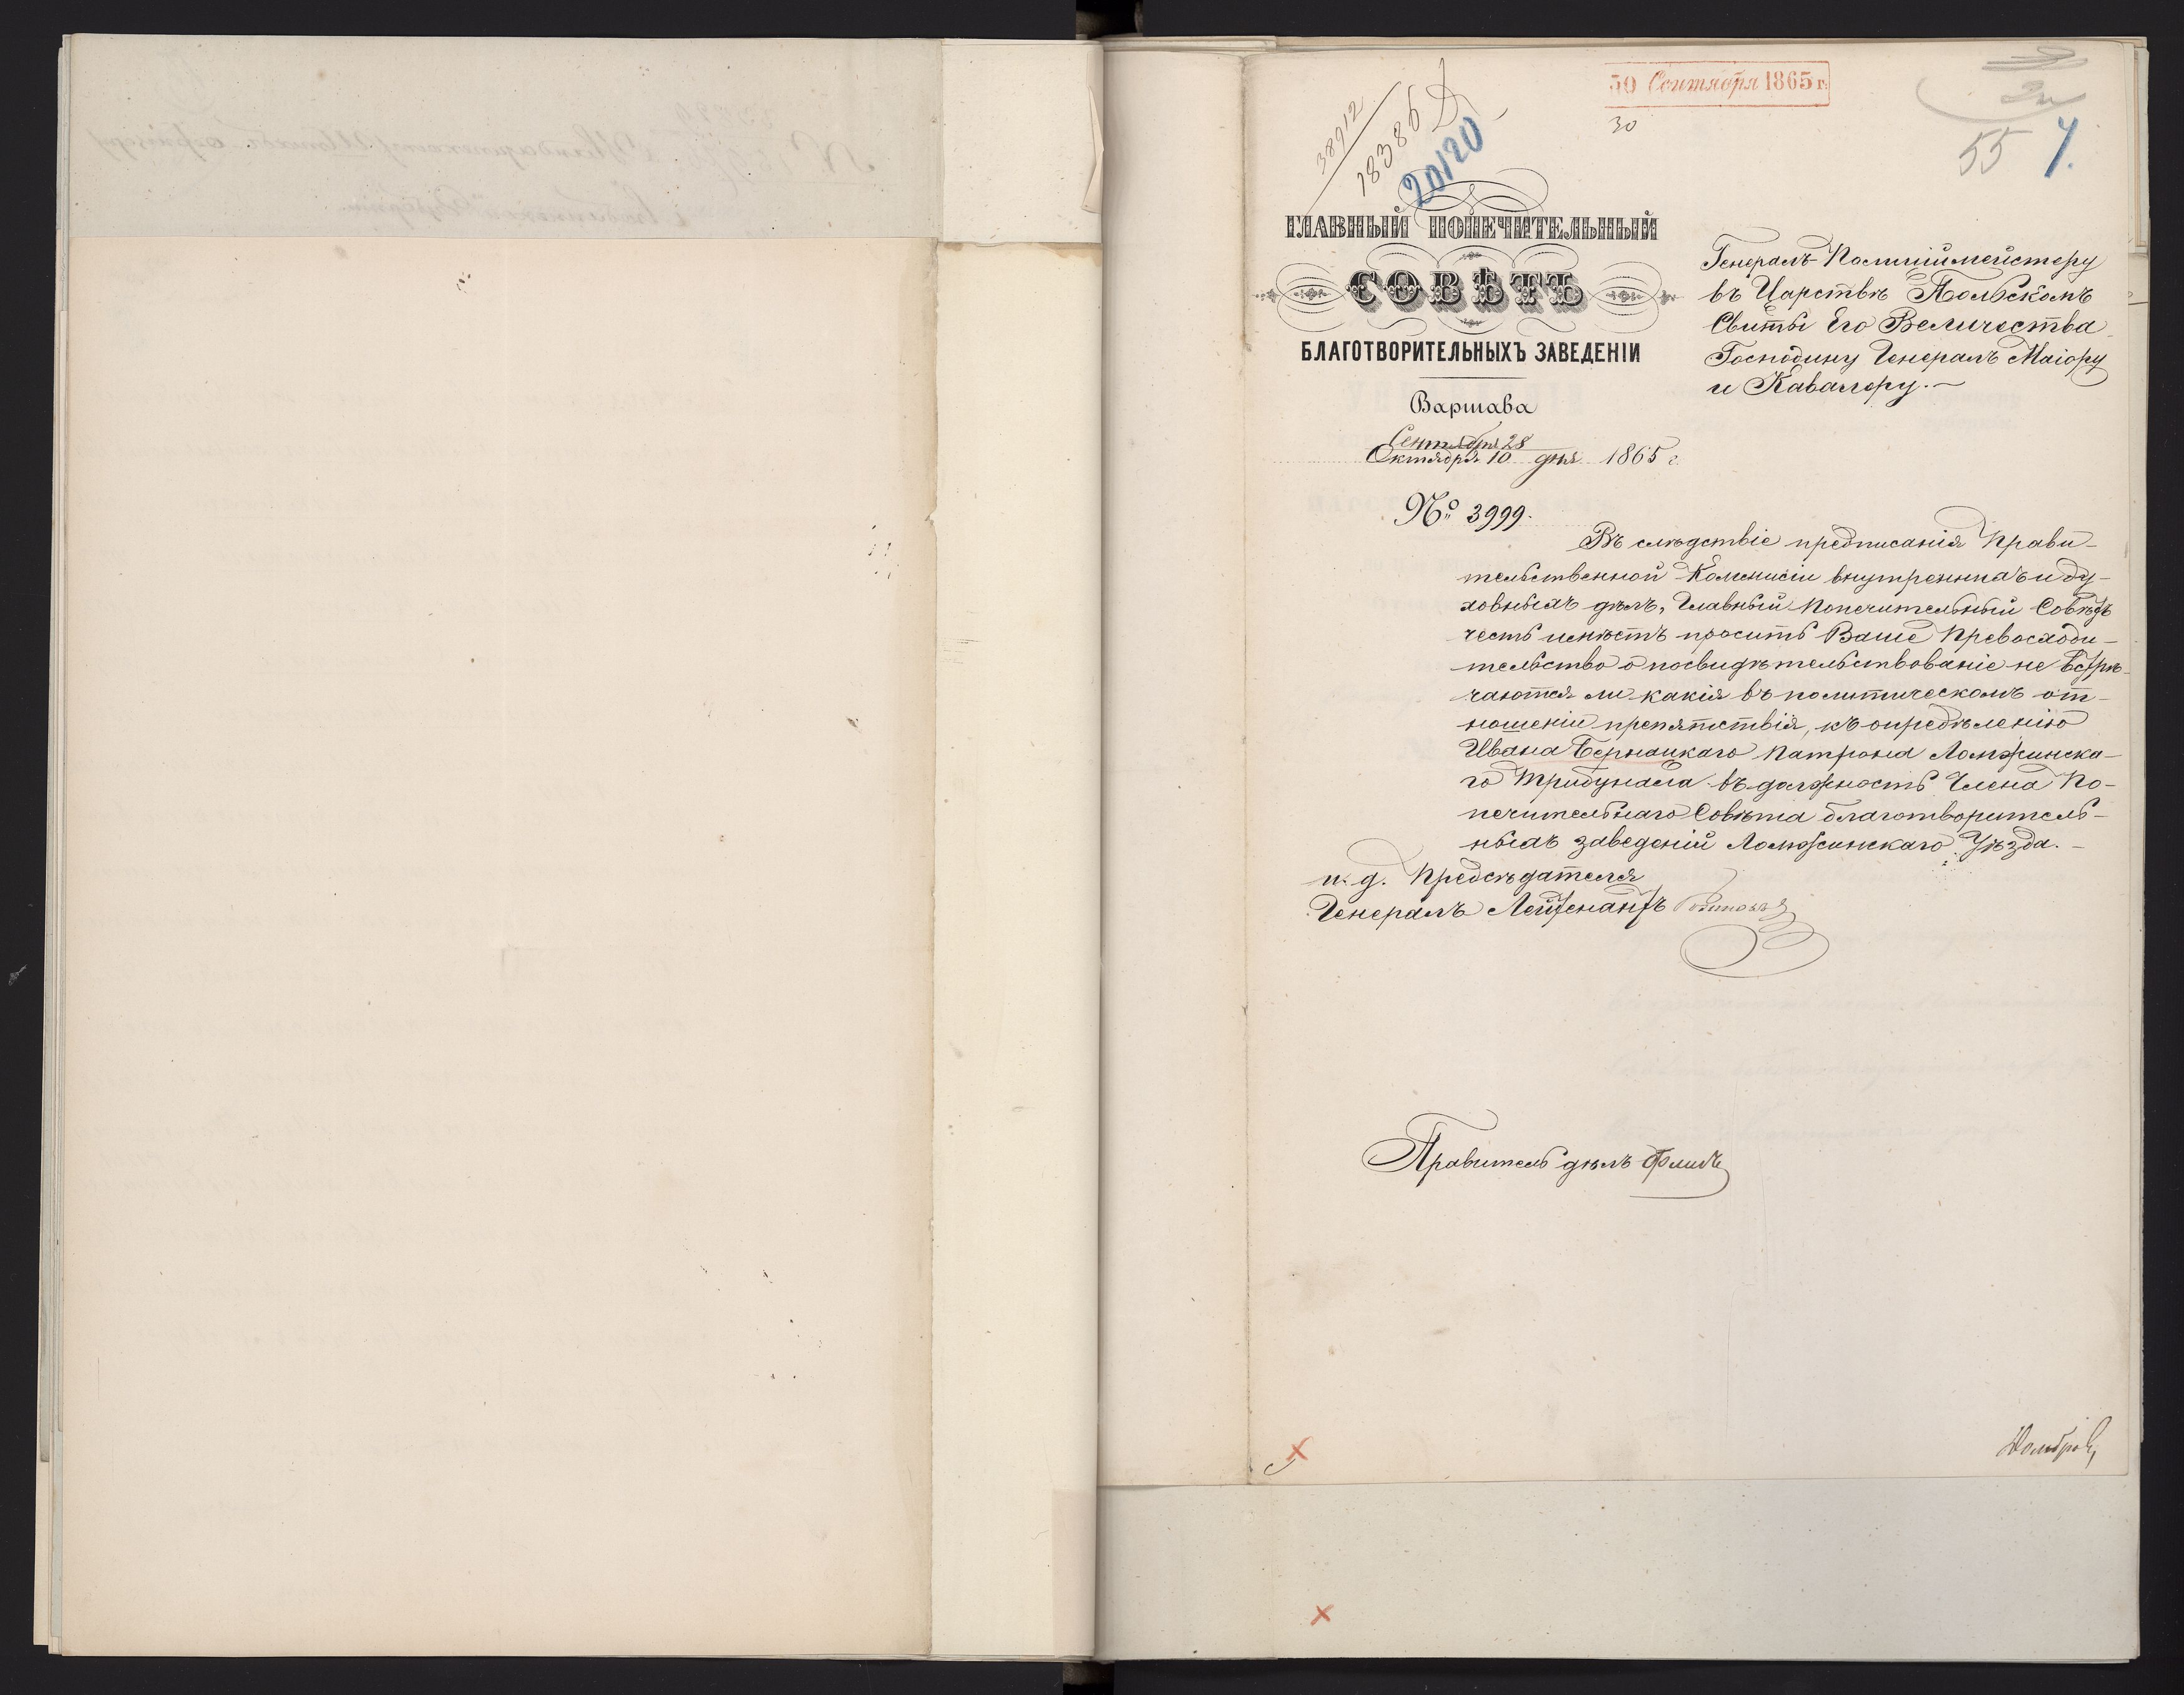 30 Сентября 1865 г.
30
38912
18386
20120
55 7.
ГЛАВНЫЙ ПОПЕЧИТЕЛЬНЫЙ
СОВѢТЪ
БЛАГОТВОРИТЕЛЬНЫХЪ ЗАВЕДЕНІИ
Варшава
Сентября 28
Октября 10 дня 1865 г.
№ 3999.
Генералъ-Полиціймейстеру
въ Царствѣ Польскомъ
Свиты Его Величества
Господину Генералъ Маіору
и Кавалеру.—
Въ слѣдствіе предписанія Прави-
тельственной Коммисіи внутреннихъ и ду-
ховныхъ дѣлъ, Главный Попечительный Совѣтъ
честь имѣетъ просить Ваше Превосходи-
тельство о посвидѣтельствованіе не встрѣ-
чаются ли какія въ политическомъ от-
ношеніи препятствія, къ опредѣленію
Ивана Бернацкаго Патрона Ломжинска-
го Трибунала въ должность Члена По-
печительнаго Совѣта благотворитель-
ныхъ заведеній Ломжинскаго Уѣзда.—
и. д. Предсѣдателя
Генералъ Лейтенантъ
Правитель дѣлъ